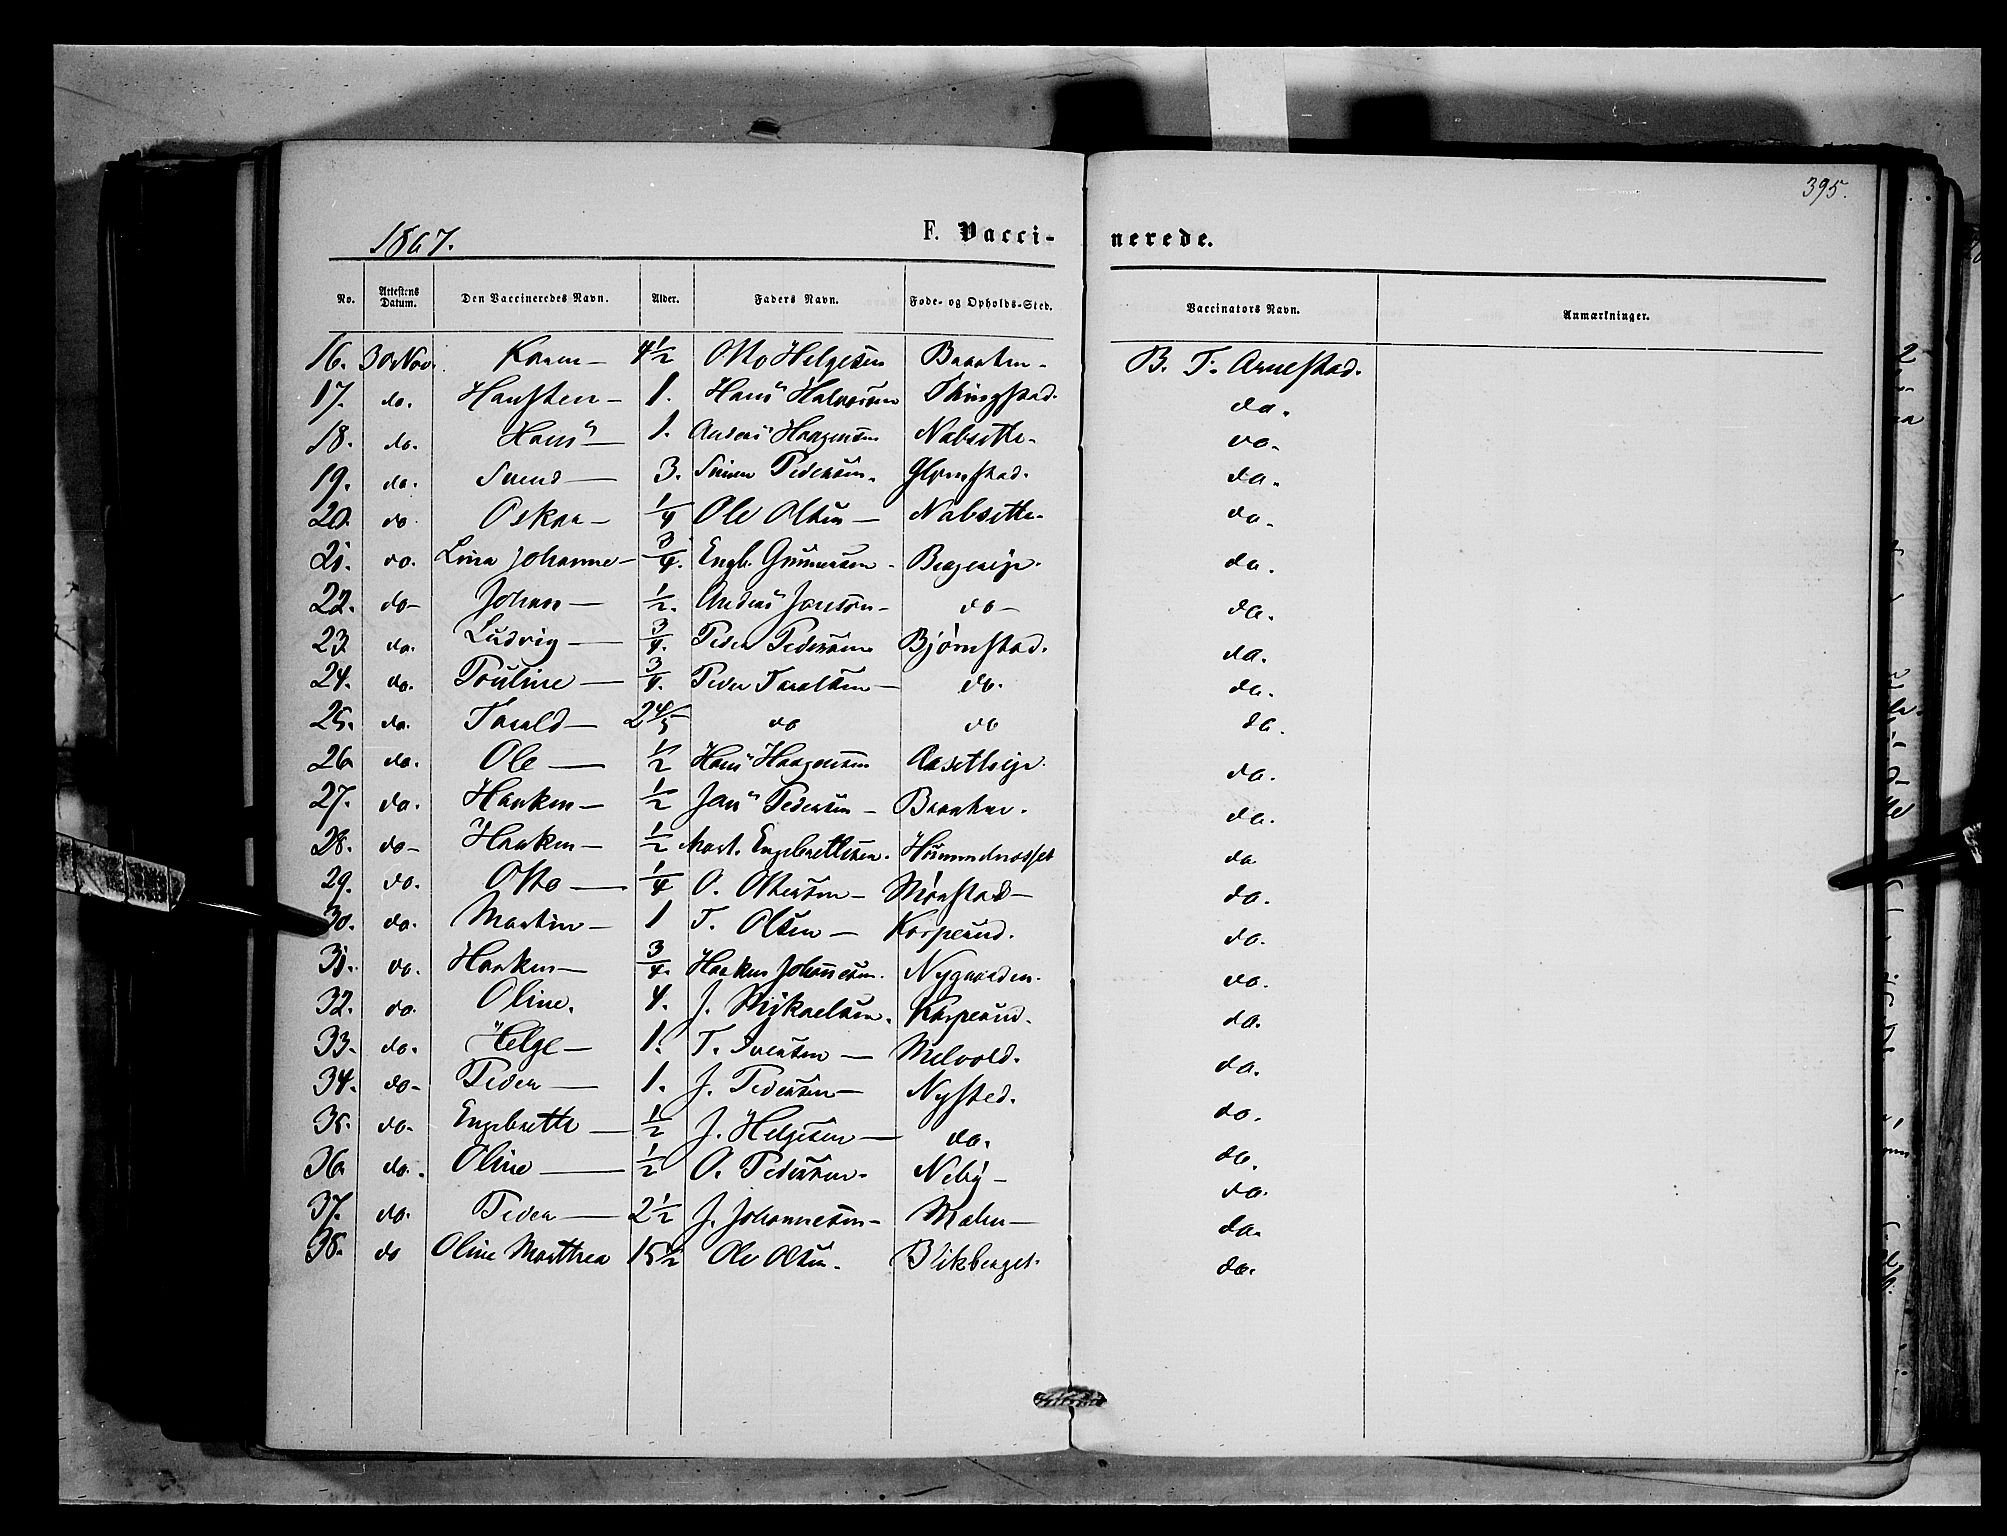 395.
1867. F. Vaccinerede.
No. Attestens Datum. Den Vaccineredes Navn. Alder. Faders Navn. Føde- og Opholds-Sted. Vaccinators Navn. Anmærkninger.
16. 30 Nov. Karen – 4½ Otto Helgesen Braaten – B. T. Arnestad.
17. do. Hansten – 1. Hans Halvorsen Thingstad. do.
18. do. Hans – 1. Anders Haagensen Nabsette – do.
19. do. Svend – 3. Simen Pedersen. Glomstad. do.
20. do. Oskar – 1/4 Ole Olsen – Nabsette – do.
21. do. Lina Johanne – 3/4. Engb. Gunnersen – Bergseje. do.
22. do – Johan – 1/2. Anders Jonsen – do – do.
23. do. Ludvig – 3/4. Peder Pedersen Bjørnstad. do.
24. do. Pouline – 3/4. Peder Taralsen – do. do.
25. do. Tarald – 2 4/5 do do do.
26. do. Ole – 1/2 Hans Haagensen Aasetheje. do.
27. do. Haaken – 1/2 Jans Pedersen – Braaten. do.
28. do – Haaken – 1/2 Mart. Engebrettsen. do
29. do. Otto – 1/4 O. Ottersen – Mørstad – do.
30. do. Martin – 1 T. Olsen – Kasperud. do.
31. do. Haaken – 3/4. Haaken Johannesen. Nygaarden. do.
32. do. Oline. 4. J. Mikkaelsen. Kasperud. do.
33. do. Helge – 1. T. Iversen – Melvold. do.
34. do – Peder – 1. J. Pedersen – Nysted. do.
35. do. Engebrette – 1/2 J. Helgesen – do. do.
36. do. Oline – 1/2 O. Pedersen. Neby – do.
37. do. Peder – 2½ J. Johannesen – Mælen – do.
38. do Oline Marthea 15½ Ole Olsen. Blikberget. do.